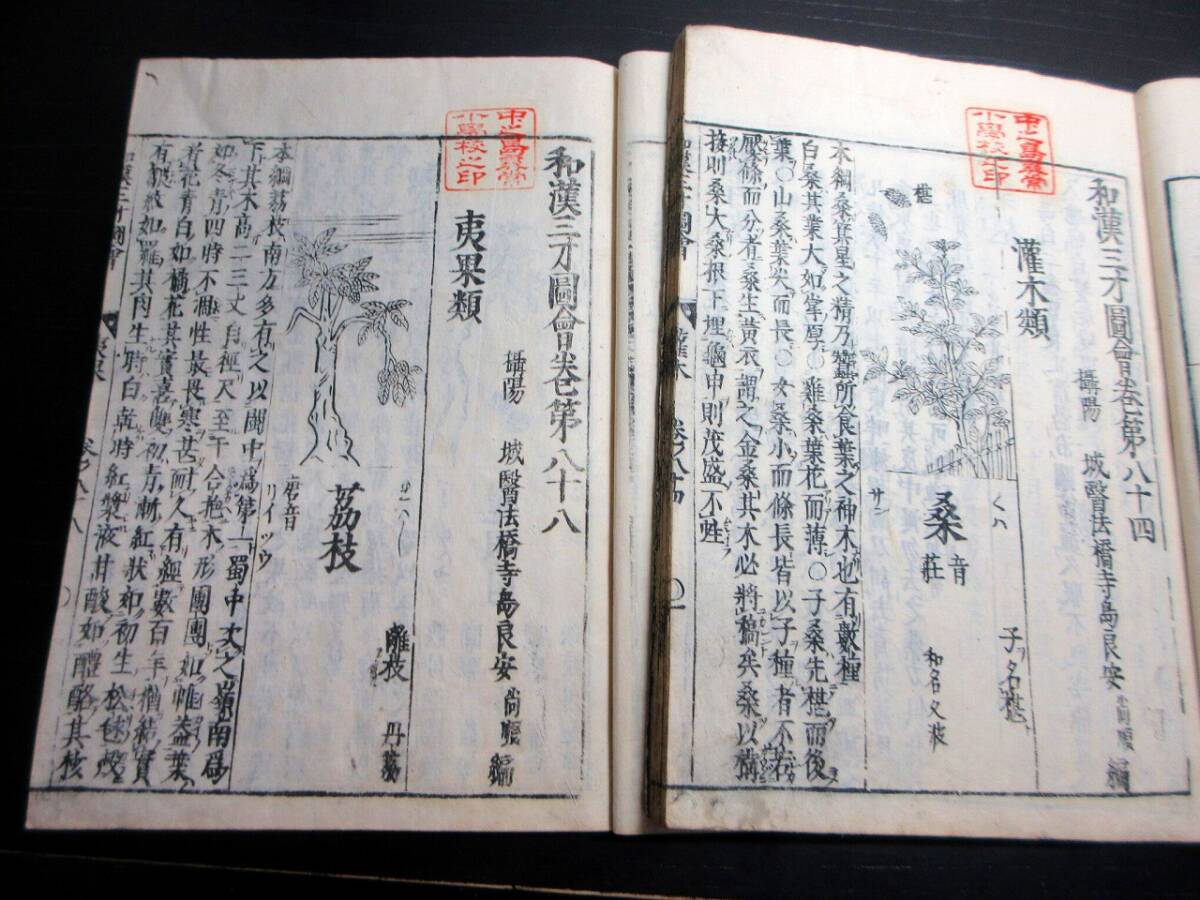 和漢三才圖會卷第八十四
攝陽 城醫法橋寺島良安尚順 編
灌木類
子ヲ名椹ト
くハ
桑 音莊
サン
和名久波
椹
本綱桑箕星之精乃蠶所食葉之神木也有數種
白桑其葉大如掌厚○雞桑葉花而薄○子桑先椹而後
葉○山桑葉尖而長○女桑小而條長皆以子種者不若
壓條而分者桑生黃衣謂之金桑其木必將槁矣桑以構
接則桑大桑根下埋龜甲則茂盛不蛀
和漢三才圖會
灌木
卷ノ八十四
〇一
中之島農常
小學校之印
和漢三才圖會卷第八十八
攝陽 城醫法橋寺島良安尚順 編
夷果類
荔枝
離枝 丹荔
唐音
リイツウ
本綱荔枝南方多有之以閩中爲第一蜀中次之嶺南爲
下其木高二三丈自徑尺至于合抱木形團團如帷蓋葉
如冬青四時不凋性最畏寒甚耐久有經數百年猶結實
者花青白如橘花其實喜雙初青漸紅狀如初生松毬殼
有皺紋如羅其肉生時白乾時紅漿液甘酸如醴酪其核
夷果
卷ノ八十八
〇
中之島農常
小學校之印